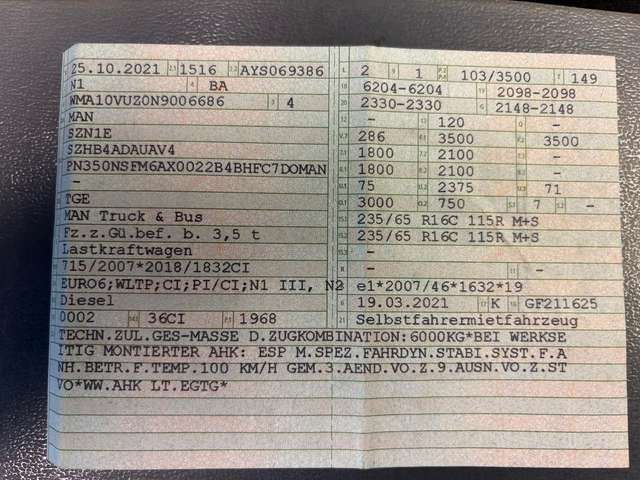 25.10.2021 1516 AYS069386 2 1 103/3500 149
N1 BA 6204-6204 2098-2098
WMA10VUZ0N9006686 4 2330-2330 2148-2148
MAN - 120 -
SZN1E 286 3500 3500
SZHB4ADAUAV4 1800 2100 -
PN350NSFM6AX0022B4BHFC7DOMAN 1800 2100 -
- 75 2375 71
TGE 3000 750 7 -
MAN Truck & Bus 235/65 R16C 115R M+S
Fz.z.Gü.bef. b. 3,5 t 235/65 R16C 115R M+S
Lastkraftwagen -
715/2007*2018/1832CI - -
EURO6;WLTP;CI;PI/CI;N1 III, N2 e1*2007/46*1632*19
Diesel 19.03.2021 K GF211625
0002 36CI 1968 Selbstfahrermietfahrzeug
TECHN.ZUL.GES-MASSE D.ZUGKOMBINATION:6000KG*BEI WERKSE
ITIG MONTIERTER AHK: ESP M.SPEZ.FAHRDYN.STABI.SYST.F.A
NH.BETR.F.TEMP.100 KM/H GEM.3.AEND.VO.Z.9.AUSN.VO.Z.ST
VO*WW.AHK LT.EGTG*